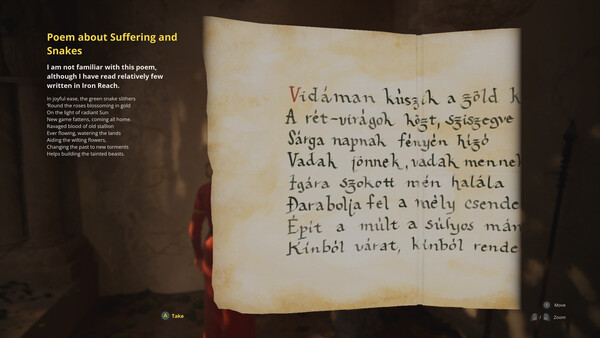 Poem about Suffering and
Snakes
I am not familiar with this poem,
although I have read relatively few
written in Iron Reach.
In joyful ease, the green snake slithers
'Round the roses blossoming in gold
On the light of radiant Sun
New game fattens, coming all home.
Ravaged blood of old stallion
Ever flowing, watering the lands
Aiding the wilting flowers,
Changing the past to new torments
Helps building the tainted beasts.
Vidáman kúszik a zöld k
A rét-virágok közt, sziszegve
Sárga napnak fényén hízó
Vadak jönnek, vadak mennek
Igára szokott mén halála
Darabolja fel a mély csende
Épít a múlt a súlyos mán
Kínból várat, kínból rende
A Take
Move
/ Zoom